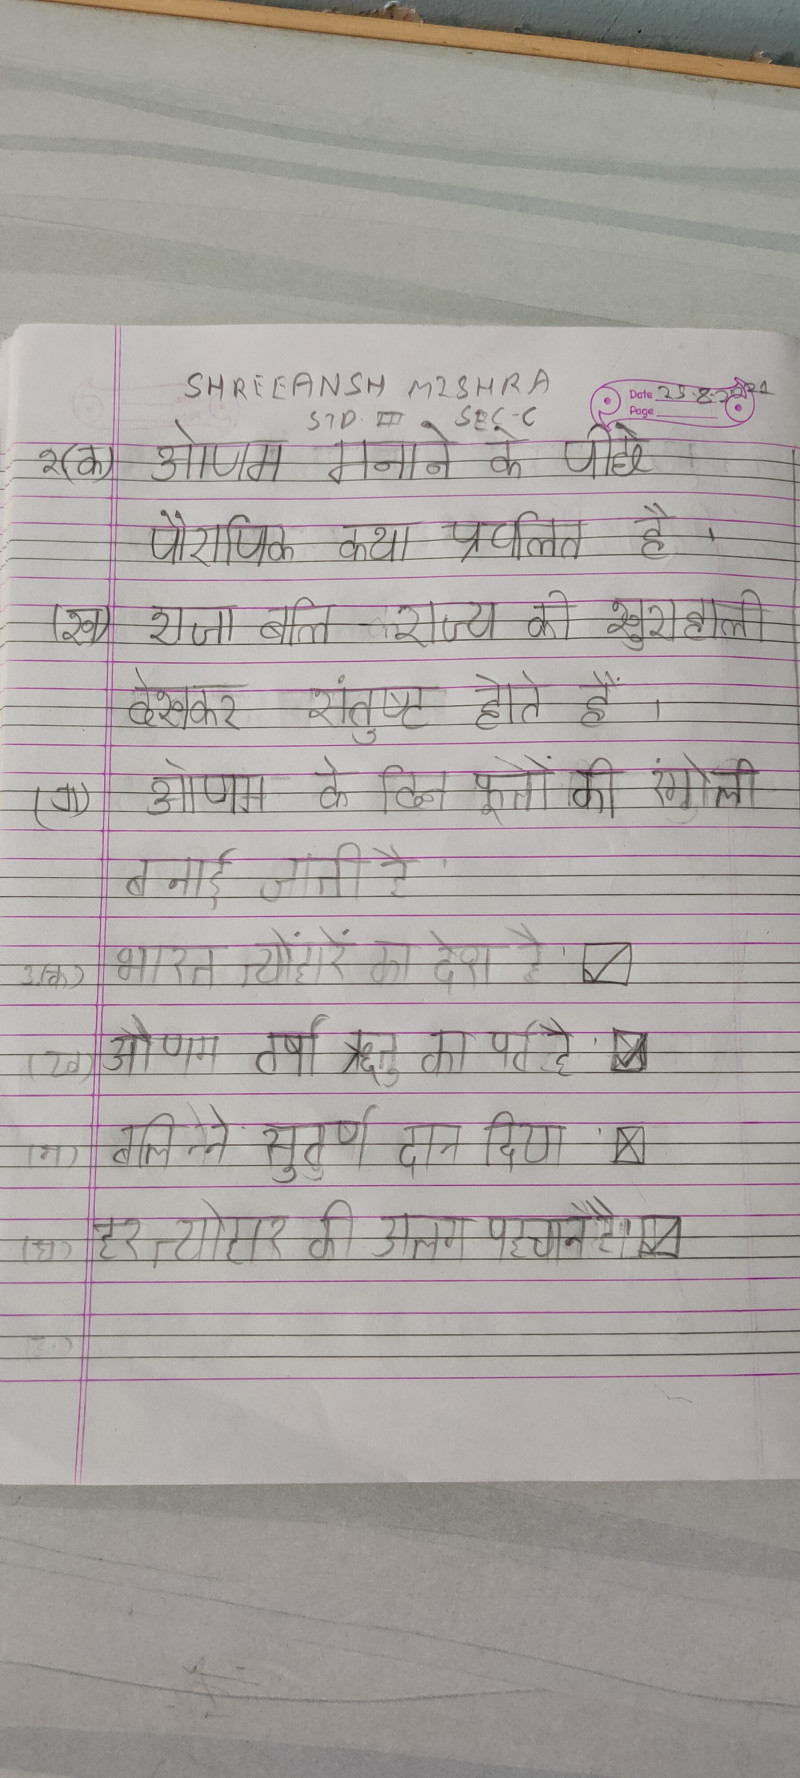 SHREEANSH MISHRA
Date 25.8.2021
STD. III SEC-C
Page
२(क) ओणम मनाने के पीछे
पौराणिक कथा प्रचलित है ।
(ख) राजा बलि राज्य की खुशहाली
देखकर संतुष्ट होते हैं ।
(ग) ओणम के दिन फूलों की रंगोली
बनाई जाती है ।
3.(क) भारत त्योंहारें का देश है ।
(ख) औणम वर्षा ऋतु का पर्व है ।
(ग) बलि ने सुवर्ण दान दिया ।
(घ) हर त्योहार की अलग पहचान है।